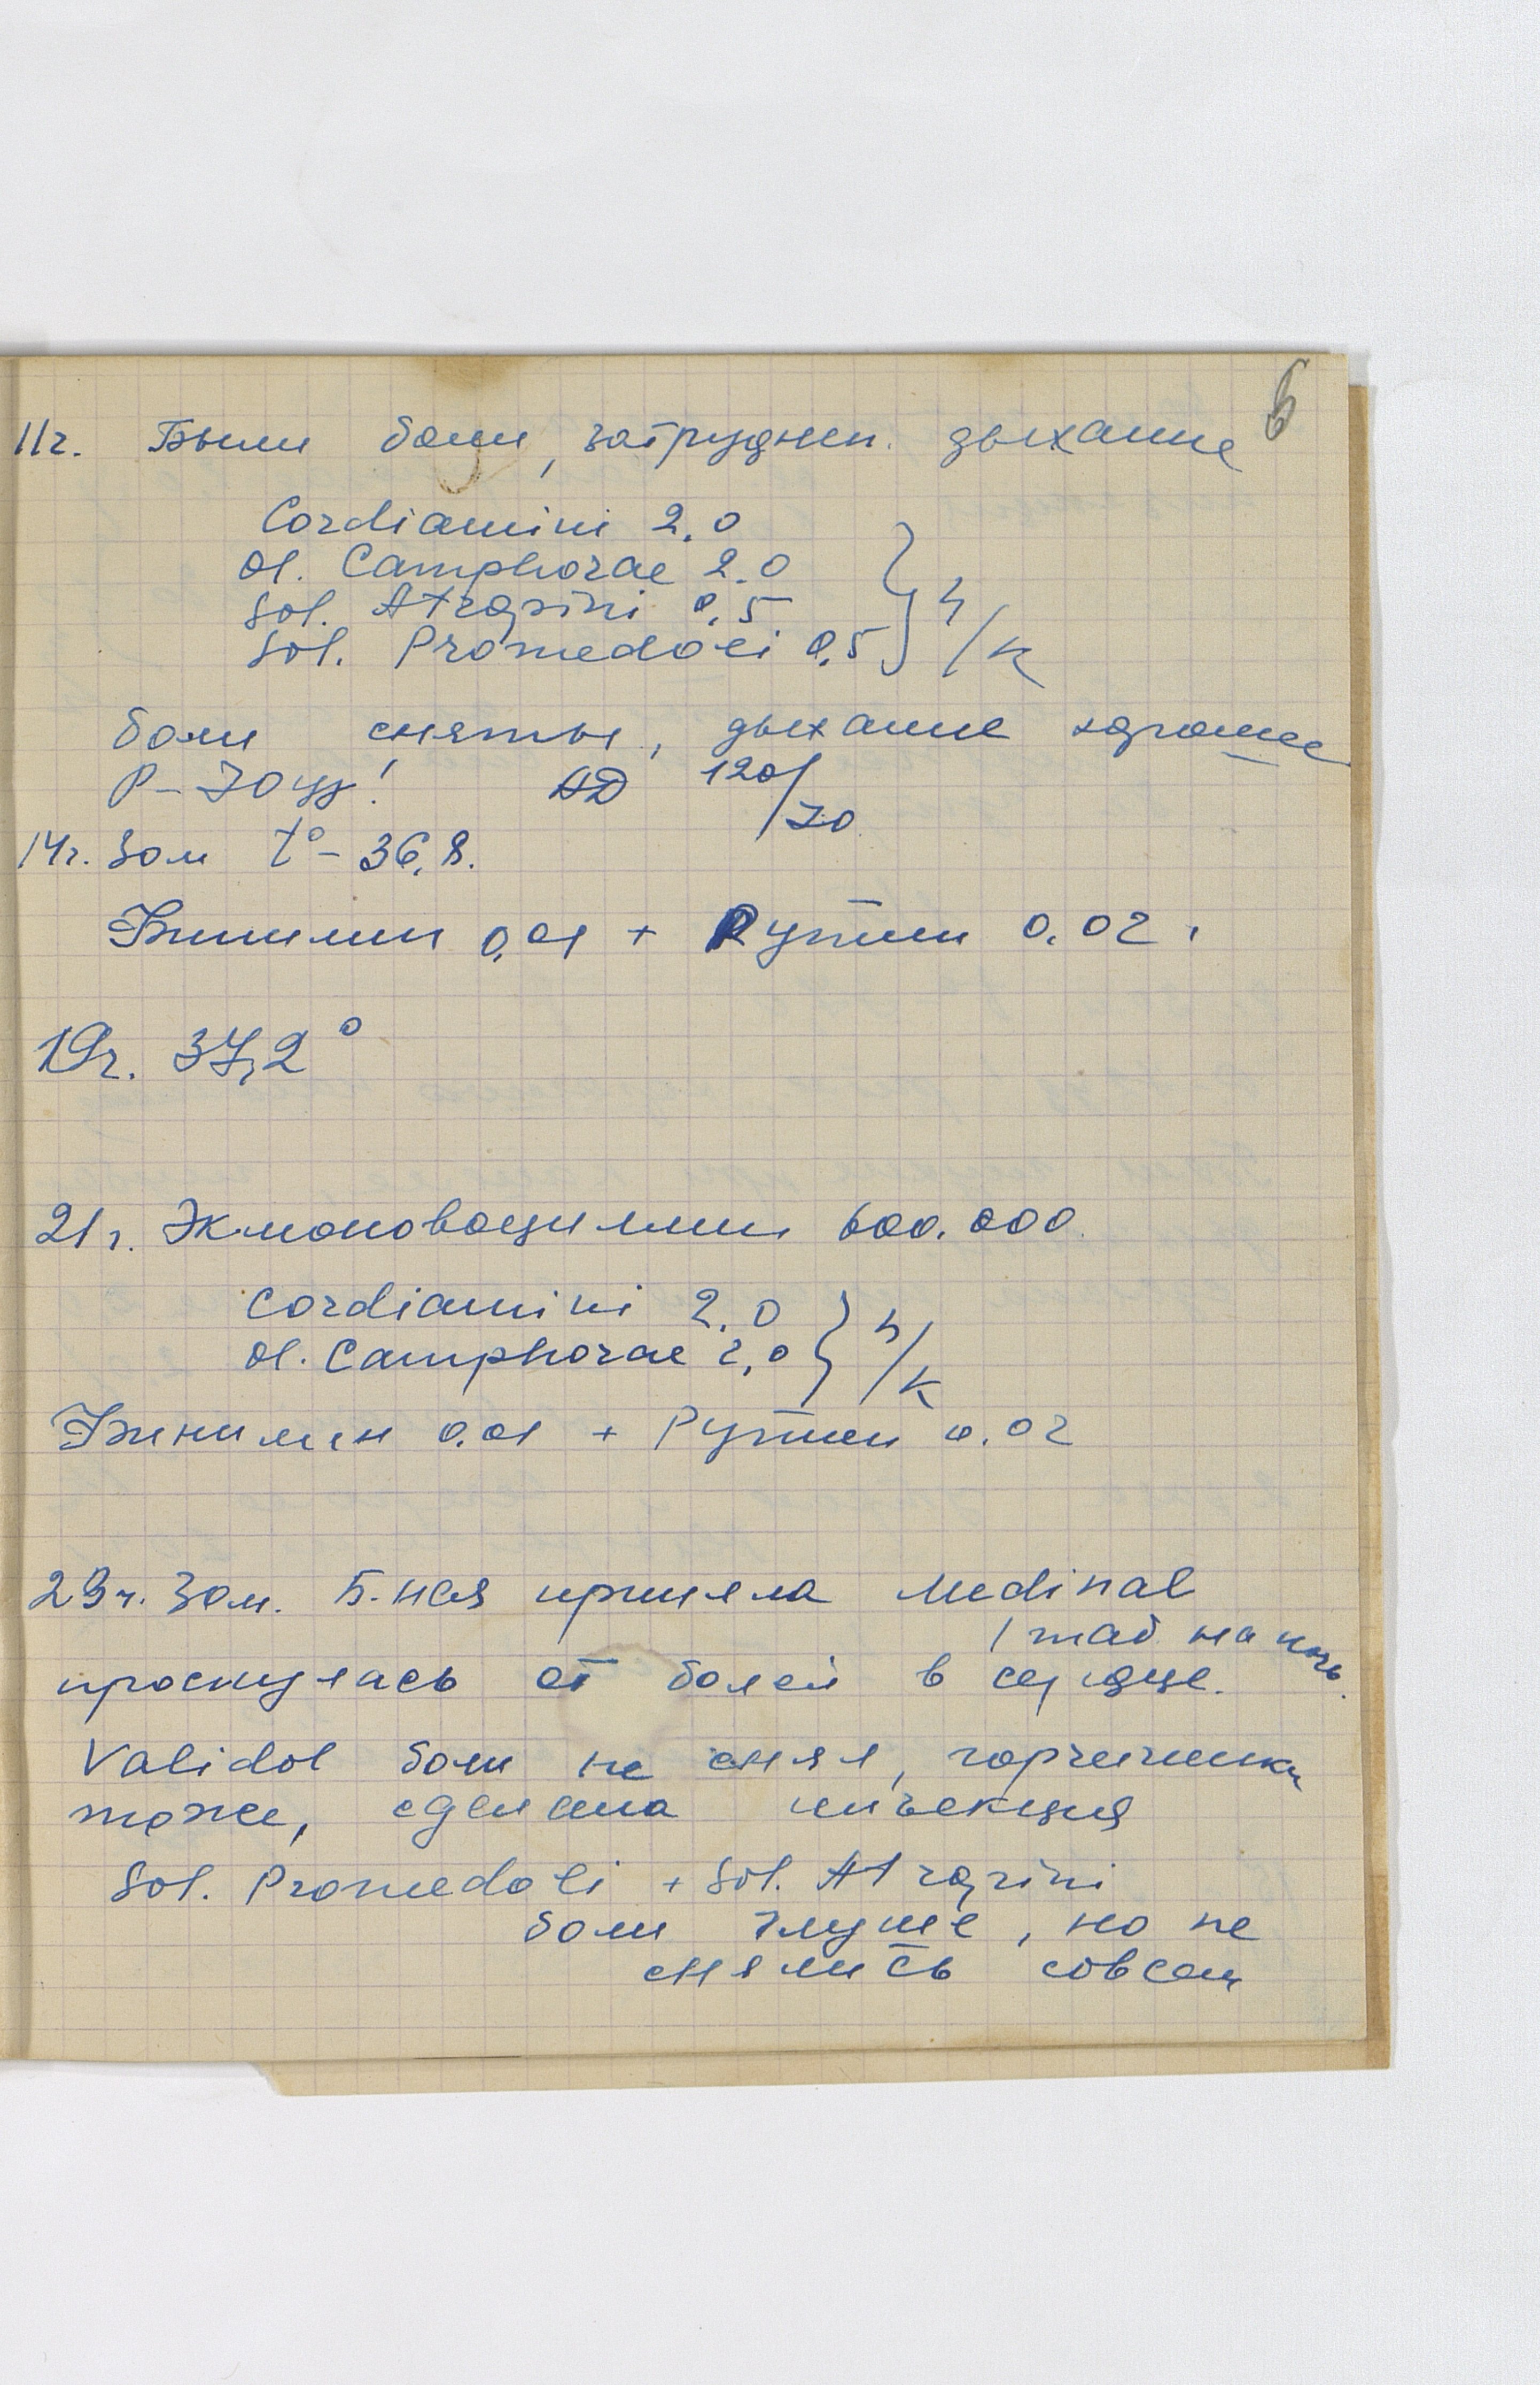 6
11ч. Были боли, затруднен. дыхание
Cordiamini 2.0
Ol. Camphorae 2.0
Sol. Atropini 0,5
Sol. Promedoli 0,5 } п/к
боли сняты, дыхание хорошее
P - 70 уд! АД 120/70
14ч. 30м t° - 36,8.
19ч. 37,2°
21ч. Экмоновоциллин 600.000
Cordiamini 2,0
Ol. Camphorae 2,0 } п/к
0.01 + Рутин 0.02
23ч. 30м. Б-ная приняла Medinal
1 таб на ночь.
проснулась от болей в сердце.
Validol боли не снял, горчичники
тоже, сделана инъекция
Sol. Promedoli + Sol. Atropini
боли глуше, но не
снялись совсем